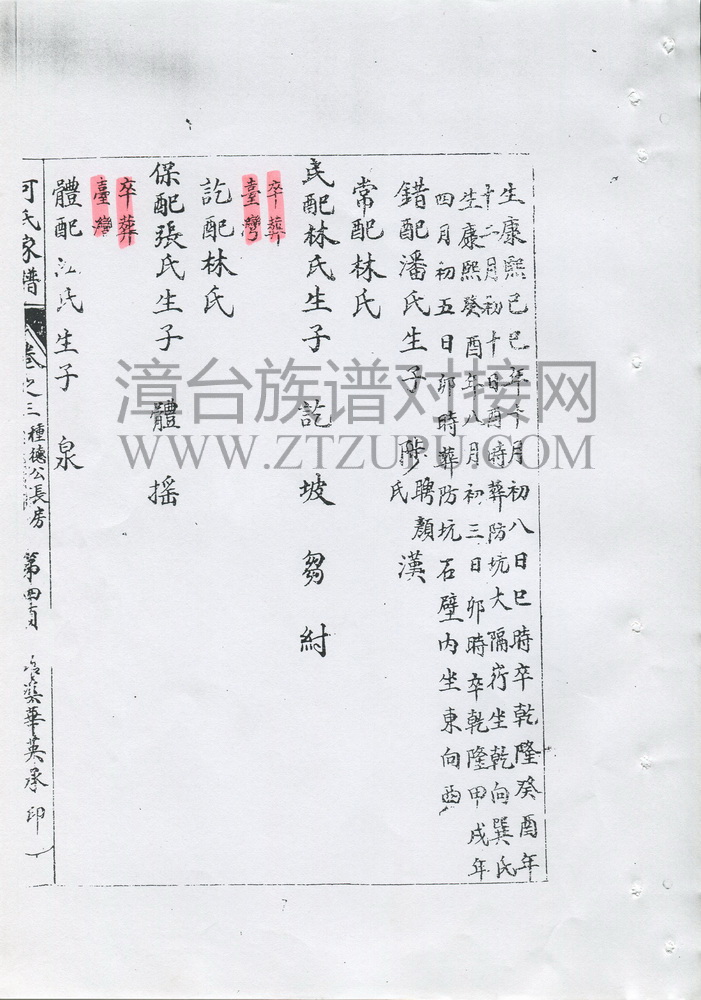 生康熙己巳年十月初八日巳時卒乾隆癸酉年
十二月初十日酉時葬防坑大隔崎坐乾向巽氏
生康熙癸酉年八月初三日卯時卒乾隆甲戌年
四月初五日卯時葬防坑石壁内坐東向酉
錯配潘氏生子 陟聘顏氏 漢
常配林氏
民配林氏生子 訖 坡 芻 紂
卒葬臺灣
訖配林氏
保配張氏生子 體 摇
卒葬臺灣
體配 氏生子 泉
何氏家譜 卷之三 種德公長房 第四頁 華英承印
漳台族谱对接网
WWW.ZTZUPU.COM